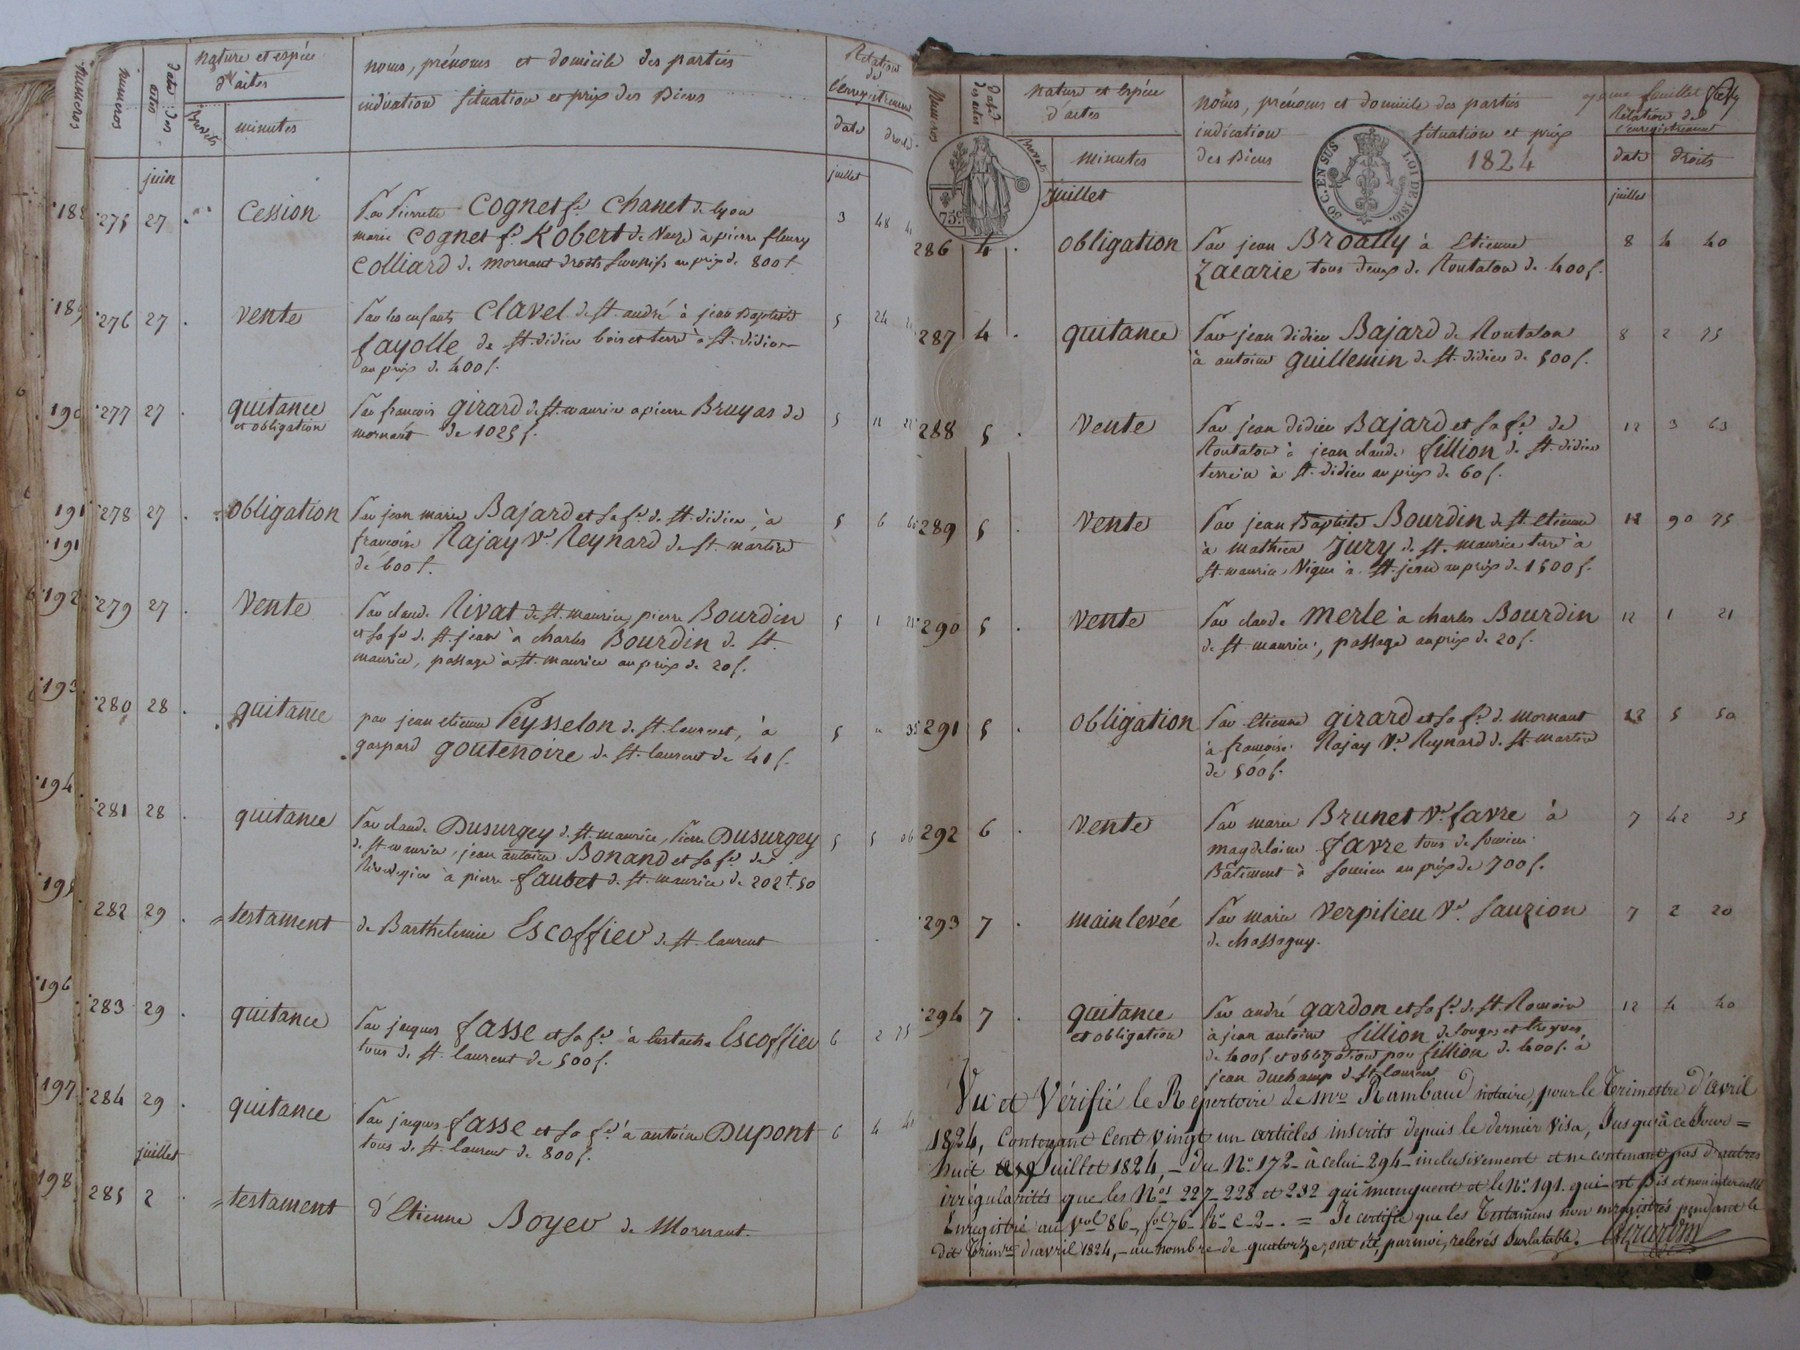 numeros
numeros
date des actes
nature et espèce
d'actes
Brevets
minutes
noms, prénoms et domicile des parties
indication situation et prix des Biens
Relation
de
l'enregistrement
date
droits
juin
juillet
188
275 27 Cession Par Pierrette Cognet fe Chanet de lyon 3 48
marie Cognet fe Robert de à pierre fleury
Colliard de mornant droits successifs au prix de 800 f.
189
276 27 vente Par les enfants Clavel de St. andré à jean Baptiste 5 24
fayolle de St. didier bois et terre à St. didier
au prix de 400 f.
190
277 27 quitance Par francois girard de St. maurice a pierre Bruyas de 5 11
et obligation mornant de 1025 f.
191
278 27 obligation Par jean marie Bajard et sa fe. de St. didier, à 5 6
191
francoise Rajay ve. Reynard de St. martin
de 600 f.
192
279 27 Vente Par claude Rivat de St. maurice, pierre Bourdin 5 1
et sa fe de St. jean à charles Bourdin de St.
maurice, passage à St. maurice au prix de 20 f.
193
280 28 quitance par jean etienne Peysselon de St. laurent, à 5 " 35
gaspard goutenoire de St. laurent de 41 f.
194
281 28 quitance Par claude Dusurgey de St. maurice, Pierre Dusurgey 5 5
de St maurice, jean antoine Bonand et sa fe. de
Riverie à pierre faubet de St. maurice de 202 f. 50
195
282 29 testament de Barthelemie Escoffier de St. laurent
196
283 29 quitance Par jacques fasse et sa fe. à Eustache Escoffier 6 2 75
tous de St. laurent de 500 f.
197
284 29 quitance Par jacques fasse et sa fe. à antoine Dupont 6 4
tous de St. laurent de 800 f.
juillet
198
285 2 testament d'Etienne Boyer de Mornant.
numeros
date des actes
nature et espèce
d'actes
Brevets
minutes
noms, prénoms et domicile des parties
indication situation et prix
des Biens
1824
feuillet
Relation de
l'enregistrement
date droits
75c.
50 C. EN SUS
LOI DE 1816.
Juillet
juillet
286 4 obligation Par jean Broally à Etienne 8 4 40
Zacarie tous deux de Rontalon de 400 f.
287 4 quitance Par jean didier Bajard de Rontalon 8 2 75
à antoine guillemin de St. didier de 500 f.
288 5 Vente Par jean didier Bajard et sa fe. de 12 3 63
Rontalon à jean claude fillion de St. didier
terrein à St. didier au prix de 60 f.
289 5 Vente Par jean Baptiste Bourdin de St. etienne 12 90 75
à mathieu Jury de St. maurice terre à
St. maurice, Vigne à St. jean au prix de 1500 f.
290 5 Vente Par claude merle à charles Bourdin 12 1 21
de St maurice, passage au prix de 20 f.
291 5 obligation Par Etienne girard et sa fe. de Mornant 12 5 50
à francoise Rajay Ve. Reynard de St. martin
de 500 f.
292 6 Vente Par marie Brunet Ve favre à 7 42 35
magdeleine favre tous de soucieu
Bâtiment à soucieu au prix de 700 f.
293 7 mainlevée Par marie Verpilieu Ve. Sauzion 7 2 20
de chassagny.
294 7 quitance Par andré gardon et sa fe. de St. Romain 12 4 40
et obligation à jean antoine fillion de
de 400 f et obligation par fillion de 400 f. à
jean duchamp de St laurent
Vu et Vérifié le Repertoire de Me Rambaud notaire, pour le Trimestre d'avril
1824, Contenant Cent vingt un articles inscrits depuis le dernier visa, Jusqu'à ce Jour=
huit Juillet 1824 – Du No. 172 – à celui – 294 – inclusivement et ne contenant pas d'autres
irrégularités que les Nos 227 – 228 et 232 qui manquent et le No. 191. qui est Bis et non intercallé
Enregistré au Vol 86 – fol 76 – Ro C 2. = Je certifie que les Testamens non enregistrés pendant le
dit Trimre. d'avril 1824, – au nombre de quatorze, ont été, par moi, relevés sur la table.